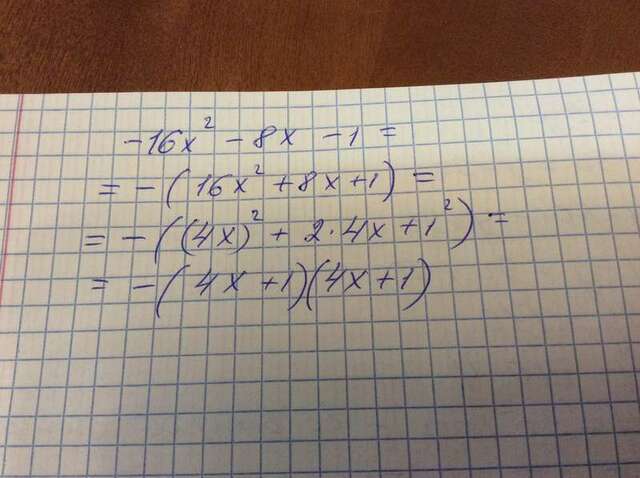 -16x² - 8x - 1 =
= -(16x² + 8x + 1) =
= -((4x)² + 2·4x + 1²) =
= -(4x + 1)(4x + 1)